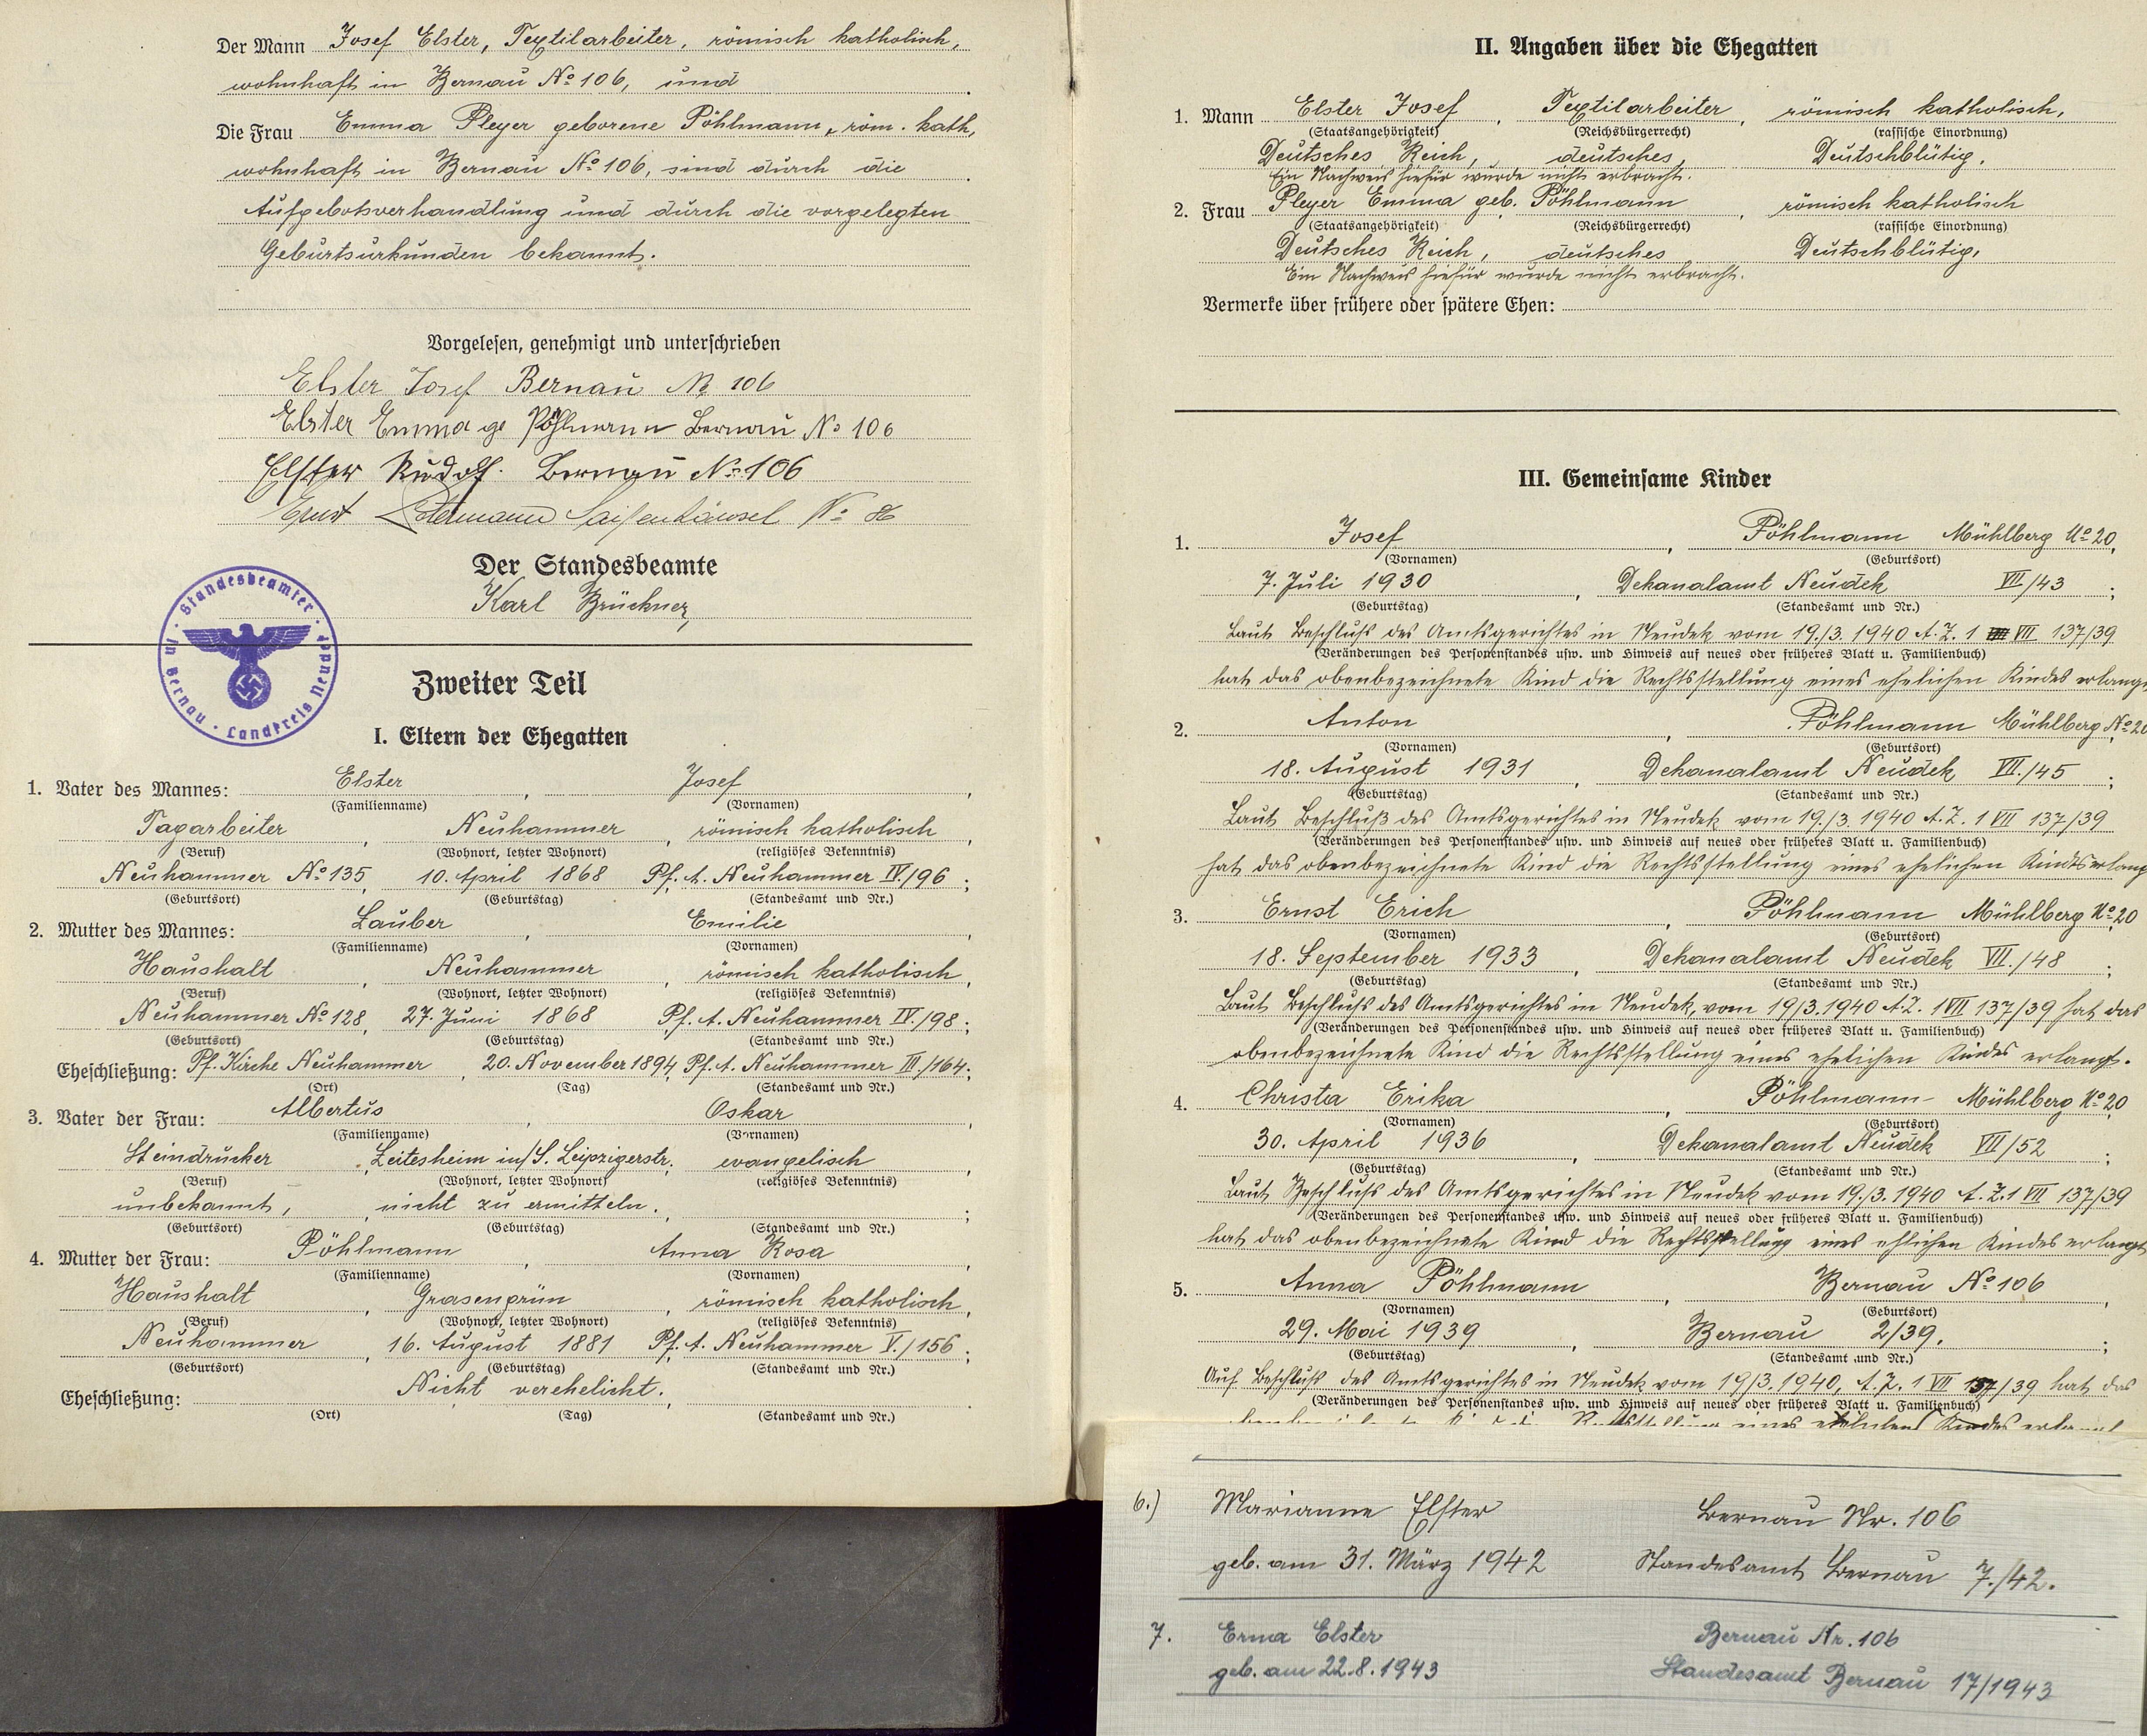 Der Mann Josef Elster, Textilarbeiter, römisch katholisch,
wohnhaft in Bernau No 106, und
Die Frau Emma Pleyer geborene Pöhlmann, röm. kath,
wohnhaft in Bernau No 106, sind durch die
Aufgebotsverhandlung und durch die vorgelegten
Geburtsurkunden bekannt.
Vorgelesen, genehmigt und unterschrieben
Elster Josef Bernau No 106
Elster Emma ge Pöhlmann Bernau No 106
Elster Rudolf. Bernau No 106
Ernst No 86
Der Standesbeamte
Karl Brückner,
Standesbeamter in Bernau · Landkreis Neudek
Zweiter Teil
I. Eltern der Ehegatten
1. Vater des Mannes: Elster, Josef,
(Familienname) (Vornamen)
Tagarbeiter, Neuhammer, römisch katholisch,
(Beruf) (Wohnort, letzter Wohnort) (religiöses Bekenntnis)
Neuhammer No 135, 10. April 1868 Pf. A. Neuhammer IV./96;
(Geburtsort) (Geburtstag) (Standesamt und Nr.)
2. Mutter des Mannes: Lauber, Emilie,
(Familienname) (Vornamen)
Haushalt, Neuhammer, römisch katholisch,
(Beruf) (Wohnort, letzter Wohnort) (religiöses Bekenntnis)
Neuhammer No 128, 27. Juni 1868 Pf. A. Neuhammer IV./98;
(Geburtsort) (Geburtstag) (Standesamt und Nr.)
Eheschließung: Pf. Kirche Neuhammer, 20. November 1894, Pf. A. Neuhammer III./164;
(Ort) (Tag) (Standesamt und Nr.)
3. Vater der Frau: Albertus, Oskar,
(Familienname) (Vornamen)
Steindrucker, Leitesheim in/S. Leipzigerstr., evangelisch,
(Beruf) (Wohnort, letzter Wohnort) (religiöses Bekenntnis)
unbekannt, nicht zu ermitteln.;
(Geburtsort) (Geburtstag) (Standesamt und Nr.)
4. Mutter der Frau: Pöhlmann, Anna Rosa,
(Familienname) (Vornamen)
Haushalt, Grasengrün, römisch katholisch,
(Beruf) (Wohnort, letzter Wohnort) (religiöses Bekenntnis)
Neuhammer, 16. August 1881 Pf. A. Neuhammer V./156;
(Geburtsort) (Geburtstag) (Standesamt und Nr.)
Eheschließung: Nicht verehelicht.
(Ort) (Tag) (Standesamt und Nr.)
II. Angaben über die Ehegatten
1. Mann Elster Josef, Textilarbeiter, römisch katholisch,
(Staatsangehörigkeit) (Reichsbürgerrecht) (rassische Einordnung)
Deutsches Reich, deutsches, Deutschblütig.
Ein Nachweis hiefür wurde nicht erbracht.
2. Frau Pleyer Emma geb. Pöhlmann, römisch katholisch
(Staatsangehörigkeit) (Reichsbürgerrecht) (rassische Einordnung)
Deutsches Reich, deutsches Deutschblütig,
Ein Nachweis hiefür wurde nicht erbracht.
Vermerke über frühere oder spätere Ehen:
III. Gemeinsame Kinder
1. Josef, Pöhlmann Mühlberg No 20,
(Vornamen) (Geburtsort)
7. Juli 1930, Dekanalamt Neudek VII/43;
(Geburtstag) (Standesamt und Nr.)
Laut Beschluß des Amtsgerichtes in Neudek vom 19./3. 1940 A. Z. 1 VII 137/39
(Veränderungen des Personenstandes usw. und Hinweis auf neues oder früheres Blatt u. Familienbuch)
hat das obenbezeichnete Kind die Rechtsstellung eines ehelichen Kindes erlangt
2. Anton, Pöhlmann Mühlberg No 20
(Vornamen) (Geburtsort)
18. August 1931 Dekanalamt Neudek VII./45;
(Geburtstag) (Standesamt und Nr.)
Laut Beschluß des Amtsgerichtes in Neudek vom 19./3. 1940 A. Z. 1 VII 137/39
(Veränderungen des Personenstandes usw. und Hinweis auf neues oder früheres Blatt u. Familienbuch)
hat das obenbezeichnete Kind die Rechtsstellung eines ehelichen Kindes erlang
3. Ernst Erich, Pöhlmann Mühlberg No 20
(Vornamen) (Geburtsort)
18. September 1933, Dekanalamt Neudek VII./48;
(Geburtstag) (Standesamt und Nr.)
Laut Beschluß des Amtsgerichtes in Neudek, vom 19/3. 1940 A. Z. 1 VII 137/39 hat das
(Veränderungen des Personenstandes usw. und Hinweis auf neues oder früheres Blatt u. Familienbuch)
obenbezeichnete Kind die Rechtsstellung eines ehelichen Kindes erlangt.
4. Christa Erika, Pöhlmann- Mühlberg No 20
(Vornamen) (Geburtsort)
30. April 1936, Dekanalamt Neudek VII/52;
(Geburtstag) (Standesamt und Nr.)
Laut Beschluß des Amtsgerichtes in Neudek vom 19./3. 1940 A. Z. 1 VII 137/39
(Veränderungen des Personenstandes usw. und Hinweis auf neues oder früheres Blatt u. Familienbuch)
hat das obenbezeichnete Kind die Rechtsstellung eines ehlichen Kindes erlangt
5. Anna Pöhlmann, Bernau No 106,
(Vornamen) (Geburtsort)
29. Mai 1939, Bernau 2/39.;
(Geburtstag) (Standesamt und Nr.)
Auf Beschluß des Amtsgerichtes in Neudek vom 19/3. 1940, A. Z. 1 VII 137/39 hat das
(Veränderungen des Personenstandes usw. und Hinweis auf neues oder früheres Blatt u. Familienbuch)
6.) Marianne Elster Bernau Nr. 106
geb. am 31. März 1942 Standesamt Bernau 7./42.
7. Erna Elster Bernau Nr. 106
geb. am 22.8.1943 Standesamt Bernau 17/1943